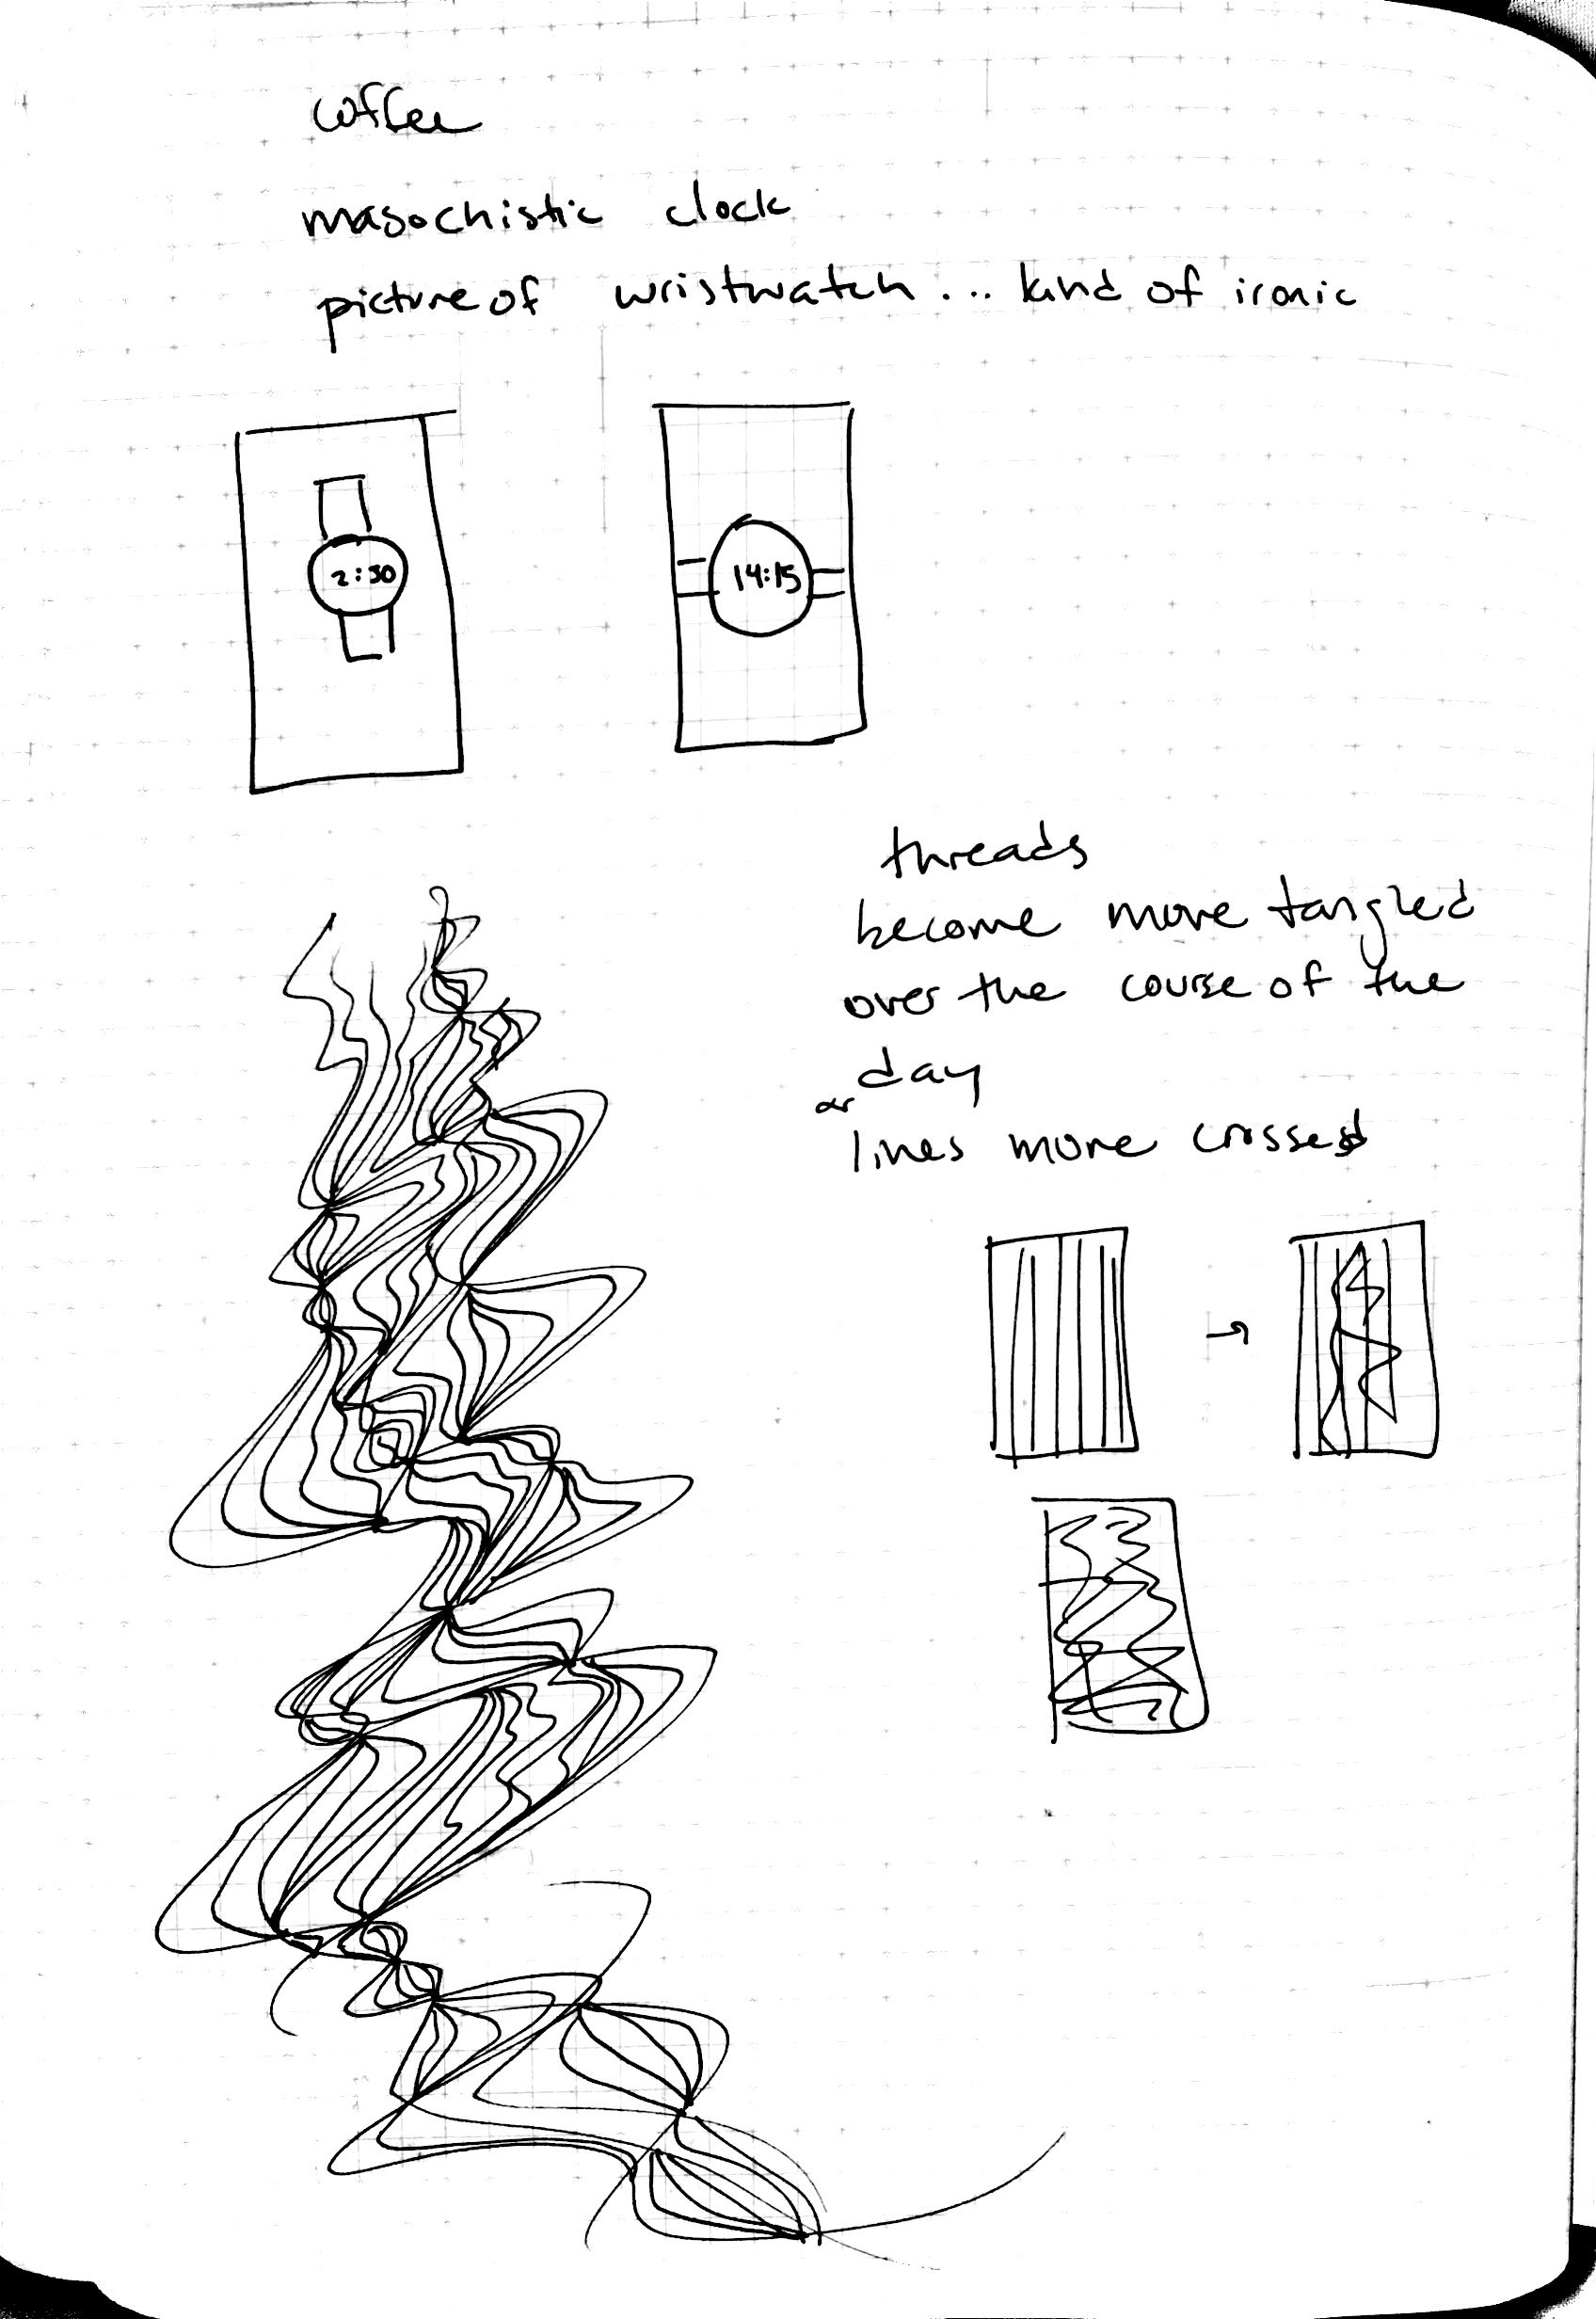 coffee
masochistic clock
picture of wristwatch... kind of ironic
2:30
14:15
threads
become more tangled
over the course of the
day
or
lines more crossed